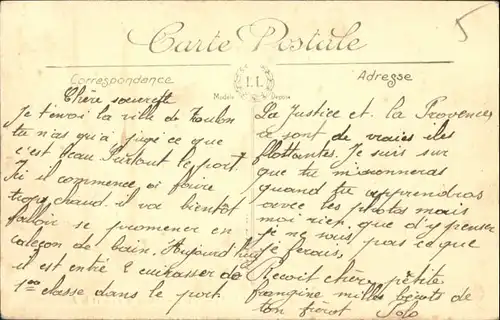 Carte Postale
LL
Correspondance
Adresse
Chère sœurette
Je t'envoi la ville de Toulon
tu n'as qu'a jugé ce que
c'est beau Surtout le port
Ici il commence a faire
trop chaud. il va bientôt
falloir se promener en
caleçon de bain. Aujourd'hui
il est entré 2 cuirasser de
1ere classe dans le port
La Justice et la Provence
ce sont de vraies iles
flottantes. Je suis sur
que tu
quand tu apprendras
avec les photos mais
moi rien, que d'y penser
je ne sais, pas ce que
je ferais,
Recoit chère petite
frangine milles de
ton frérot Lolo
5